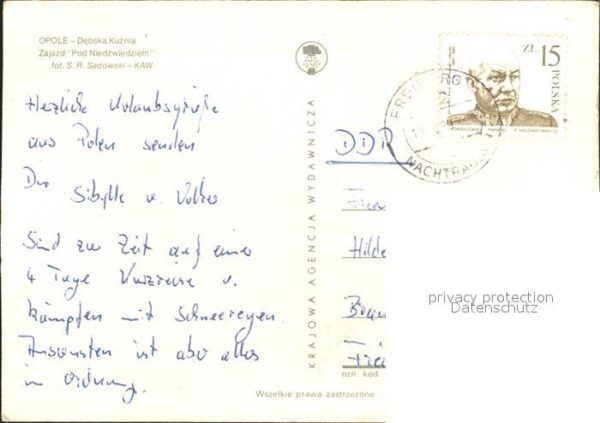 OPOLE – Dębska Kuźnia
Zajazd "Pod Niedźwiedziem"
fot. S. R. Sadowski – KAW
Herzliche Urlaubsgrüße
aus Polen senden
Dir Sibylle u. Volker
Sind zur Zeit auf einer
4 Tage Kurzreise u.
kämpfen mit Schneeregen.
Ansonsten ist aber alles
in Ordnung.
KRAJOWA AGENCJA WYDAWNICZA
Wszelkie prawa zastrzeżone
ZŁ 15
POLSKA
FREIBERG
NACHTRÄGL
DDR
Frau
Hilde
ozn. kod.
privacy protection
Datenschutz